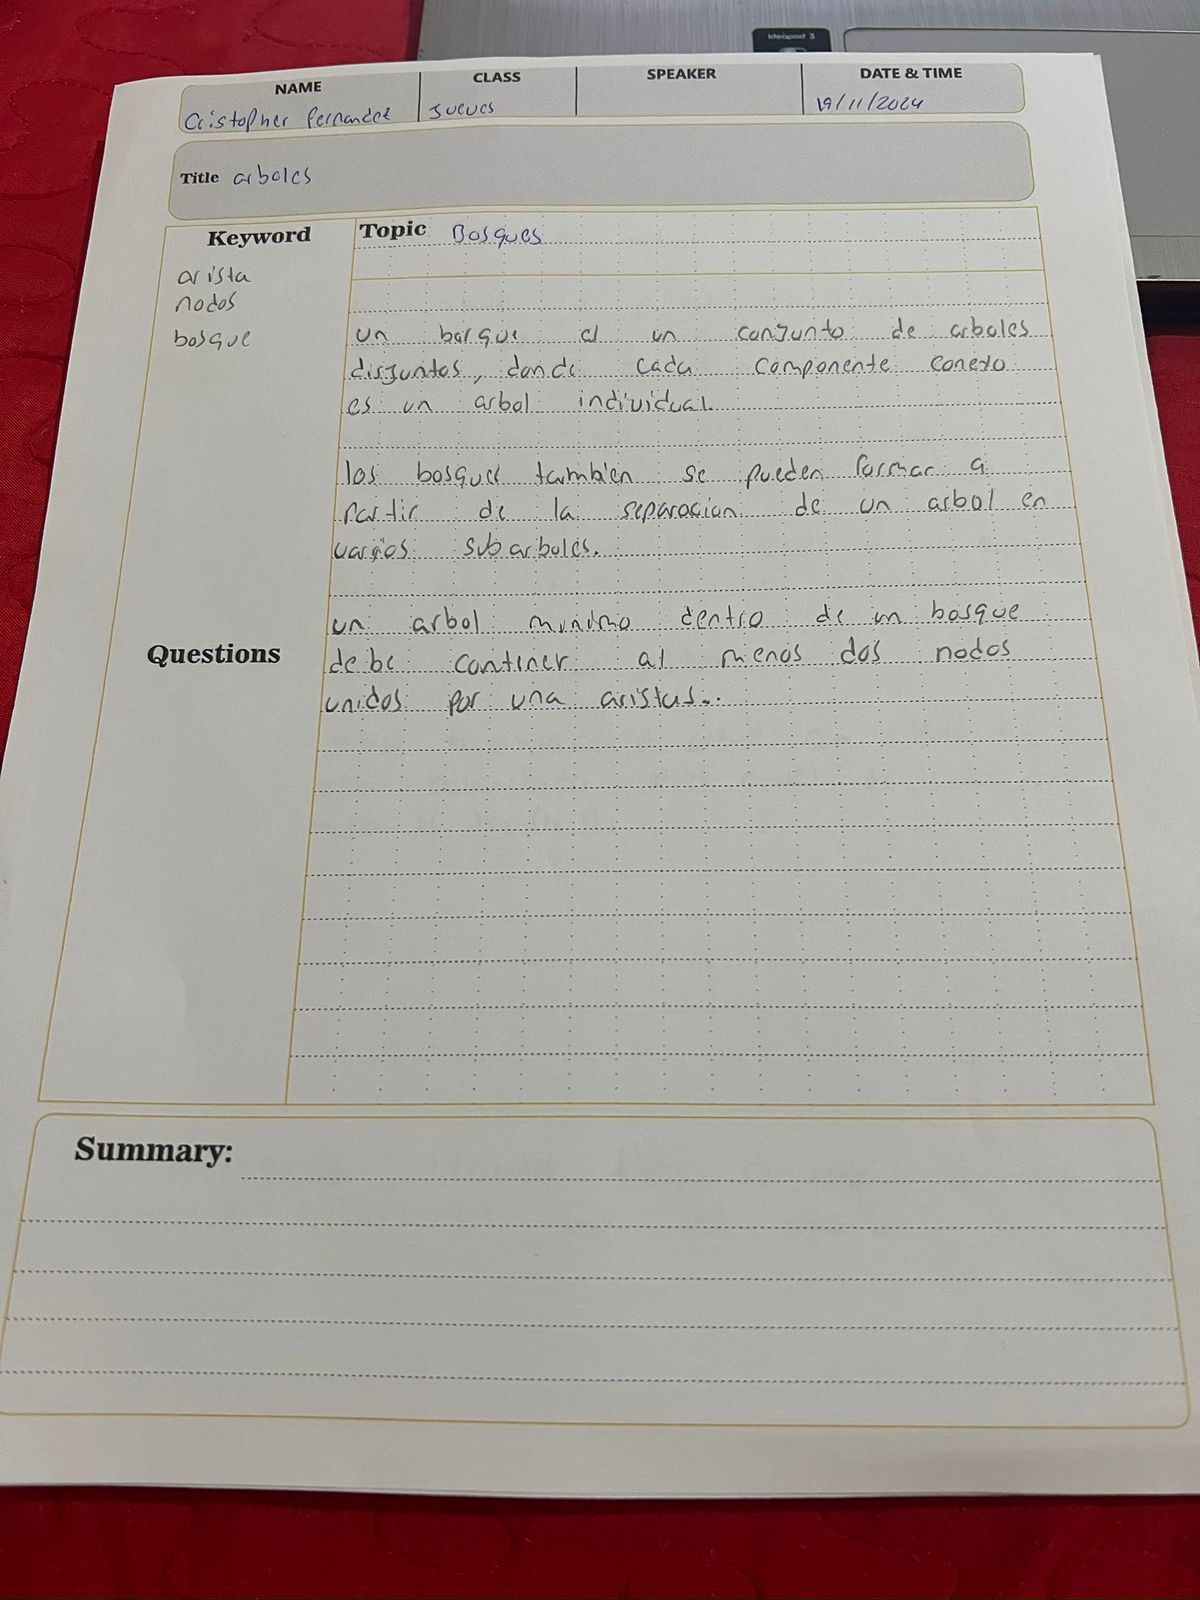 ideapad 3
NAME CLASS SPEAKER DATE & TIME
Cristopher Fernandez Jueves 19/11/2024
Title arboles
Keyword
arista
nodos
bosque
Topic Bosques
un bosque es un conjunto de arboles
disjuntos, donde cada componente conexo
es un arbol individual.
los bosques tambien se pueden formar a
partir de la separacion de un arbol en
varios subarboles.
un arbol minimo dentro de un bosque
debe contener al menos dos nodos
unidos por una aristas..
Questions
Summary: